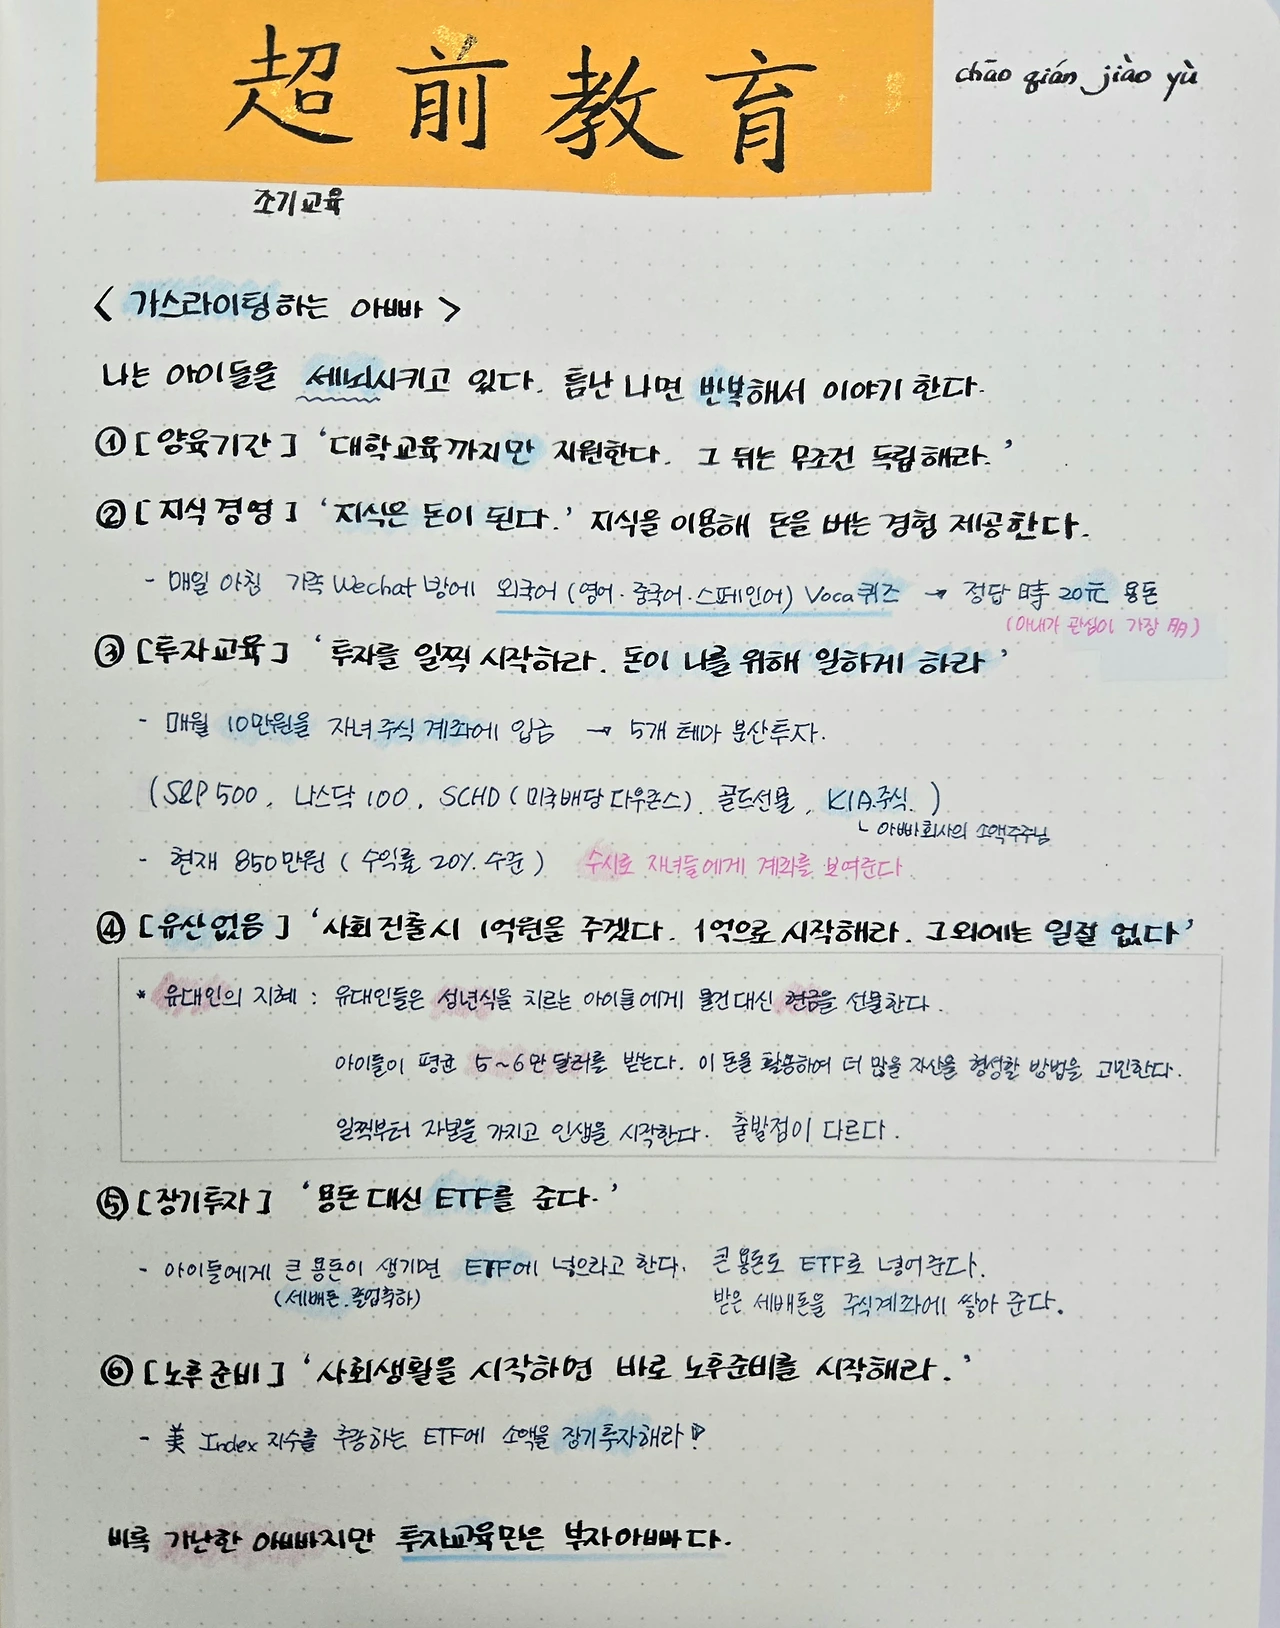 超前教育
chāo qián jiào yù
조기교육
< 가스라이팅하는 아빠 >
나는 아이들을 세뇌시키고 있다. 틈난 나면 반복해서 이야기 한다.
① [양육기간] '대학교육까지만 지원한다. 그 뒤는 무조건 독립해라.'
② [지식경영] '지식은 돈이 된다.' 지식을 이용해 돈을 버는 경험 제공한다.
- 매일 아침 가족 Wechat 방에 외국어 (영어·중국어·스페인어) Voca 퀴즈 → 정답 時 20元 용돈
(아내가 관심이 가장 多)
③ [투자교육] '투자를 일찍 시작하라. 돈이 나를 위해 일하게 하라'
- 매월 10만원을 자녀 주식 계좌에 입금 → 5개 테마 분산투자.
(S&P 500, 나스닥 100, SCHD (미국배당 다우존스), 골드선물, KIA주식.)
ㄴ 아빠회사의 소액주주님
- 현재 850만원 (수익률 20% 수준) 수시로 자녀들에게 계좌를 보여준다
④ [유산없음] '사회진출시 1억원을 주겠다. 1억으로 시작해라. 그외에는 일절 없다'
* 유대인의 지혜 : 유대인들은 성년식을 치르는 아이들에게 물건대신 현금을 선물한다.
아이들이 평균 5~6만 달러를 받는다. 이 돈을 활용하여 더 많을 자산을 형성할 방법을 고민한다.
일찍부터 자본을 가지고 인생을 시작한다. 출발점이 다르다.
⑤ [장기투자] '용돈 대신 ETF를 준다.'
- 아이들에게 큰 용돈이 생기면 ETF에 넣으라고 한다. 큰 용돈도 ETF로 넣어준다.
(세배돈.졸업축하) 받은 세배돈을 주식계좌에 쌓아 준다.
⑥ [노후준비] '사회생활을 시작하면 바로 노후준비를 시작해라.'
- 美 Index 지수를 추종하는 ETF에 소액을 장기투자해라!
비록 가난한 아빠지만 투자교육만은 부자아빠다.